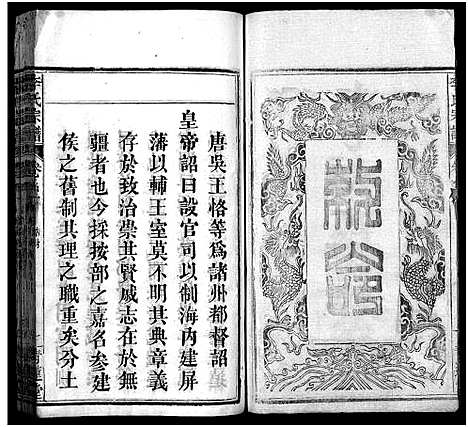 敕命
唐吳王恪等為諸州都督詔
皇帝詔曰設官司以制海內建屏
藩以輔王室莫不明其典章義
存於致治崇其賢戚志在於無
疆者也今採按部之嘉名參建
侯之舊制其理之職重矣分土
李氏宗譜